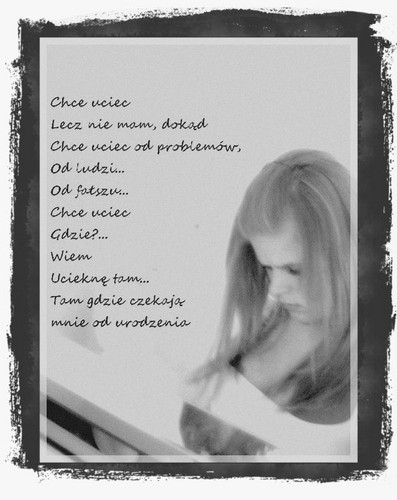 Chce uciec
Lecz nie mam, dokąd
Chce uciec od problemów,
Od ludzi...
Od fałszu...
Chce uciec
Gdzie?...
Wiem
Ucieknę tam...
Tam gdzie czekają
mnie od urodzenia